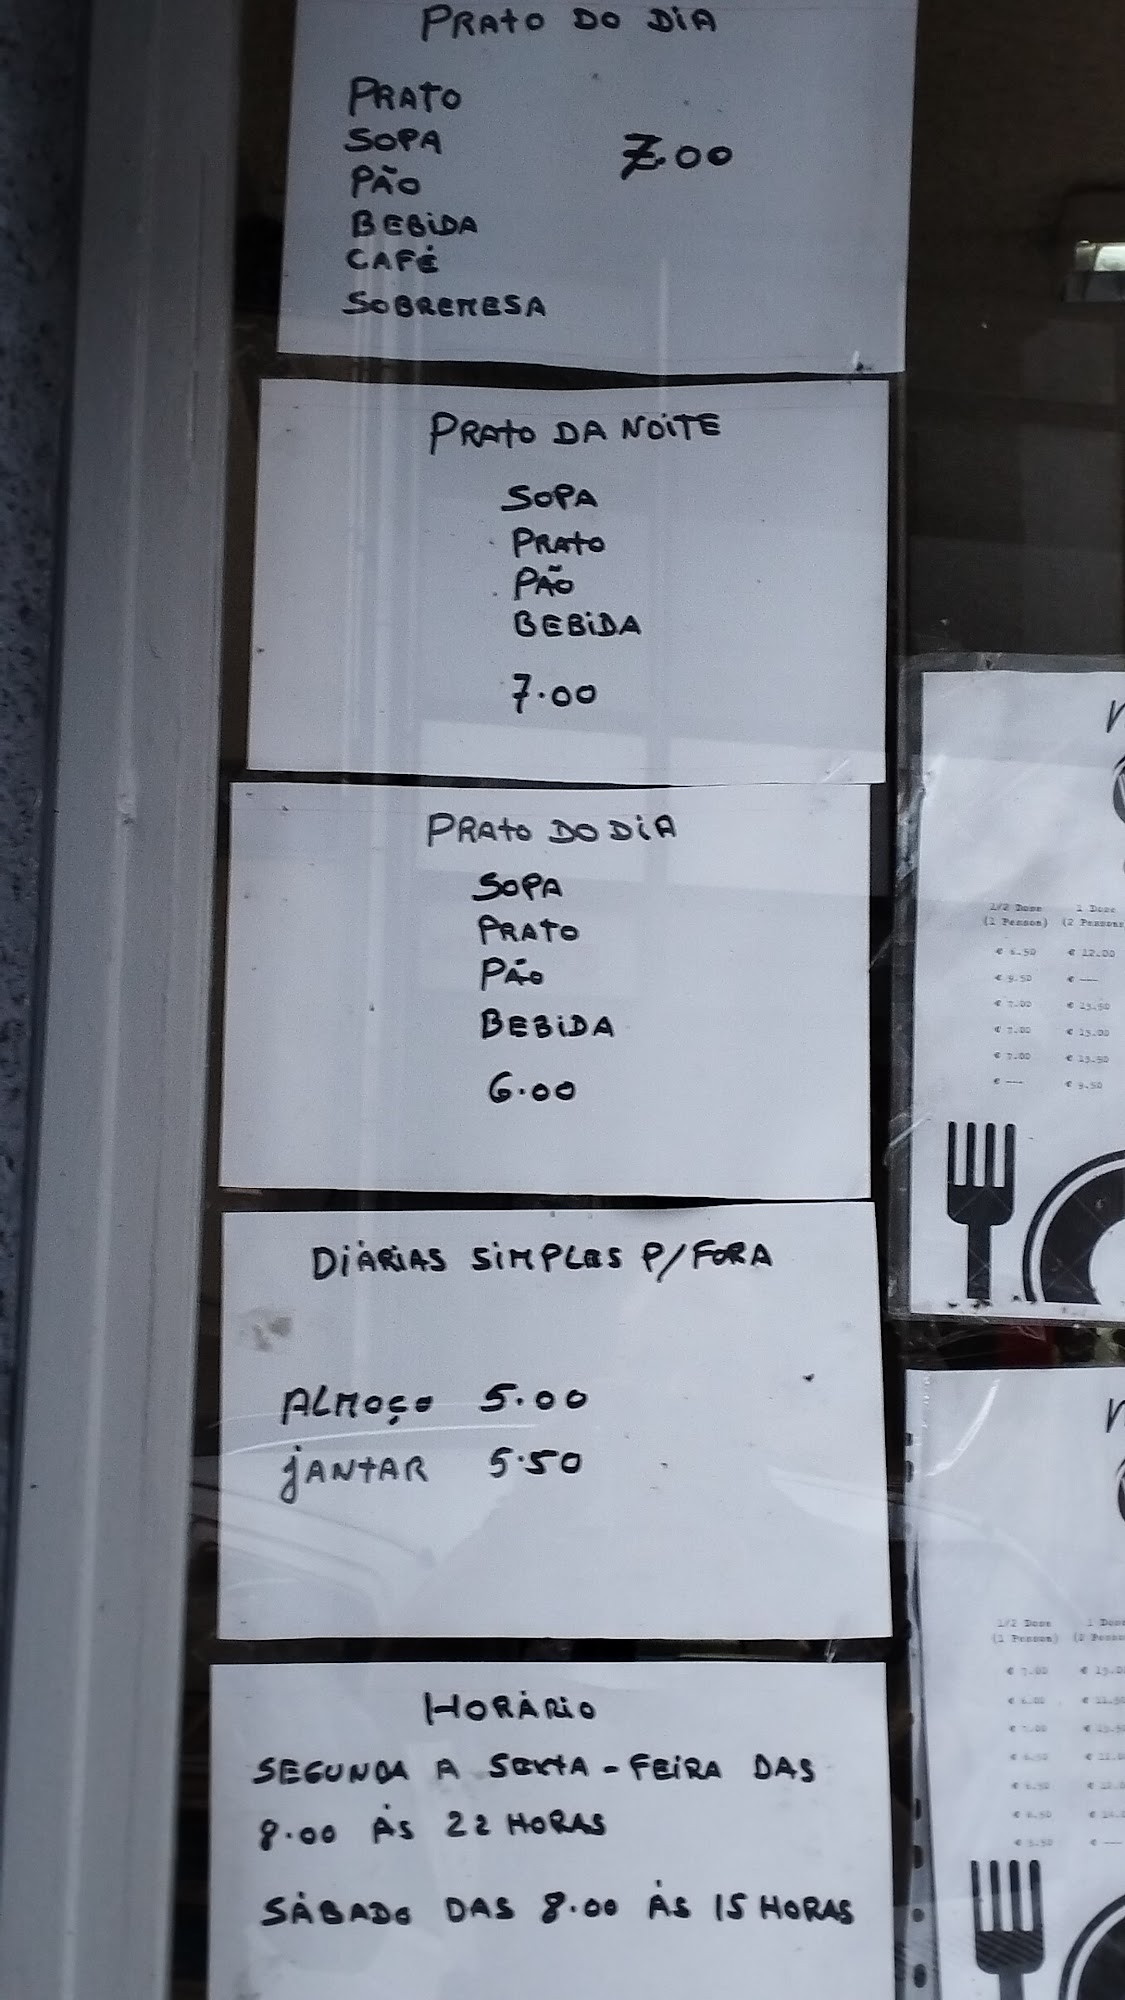 PRATO DO DIA
PRATO
SOPA
7.00
PÃO
BEBIDA
CAFÉ
SOBREMESA
PRATO DA NOITE
SOPA
PRATO
PÃO
BEBIDA
7.00
PRATO DO DIA
SOPA
PRATO
PÃO
BEBIDA
6.00
DIÁRIAS SIMPLES P/FORA
ALMOÇO 5.00
JANTAR 5.50
HORÁRIO
SEGUNDA A SEXTA-FEIRA DAS
8.00 ÀS 22 HORAS
SÁBADO DAS 8.00 ÀS 15 HORAS
1/2 Dose 1 Dose
(1 Pessoa) (2 Pessoas
€ 6.50 € 12.00
€ 9.50 € ---
€ 7.00 € 13.50
€ 7.00 € 13.00
€ 7.00 € 13.50
€ --- € 9.50
1/2 Dose 1 Dose
(1 Pessoa)
€ 7.00
€ 6.00
€ 7.00
€ 6.50
€ 6.50
€ 6.50